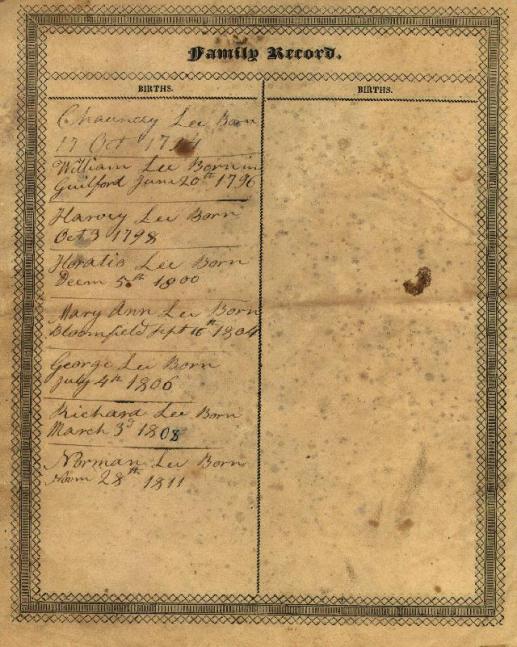 Family Record.
BIRTHS.
Chauncey Lee Born
17 Oct 1794
William Lee Born in
Guilford June 20th 1796
Harvey Lee Born
Oct 3 1798
Horatio Lee Born
Decm 5th 1800
Mary Ann Lee Born
Bloomfield Sept 16th 1804
George Lee Born
July 4th 1806
Richard Lee Born
March 3d 1808
Norman Lee Born
28th 1811
BIRTHS.